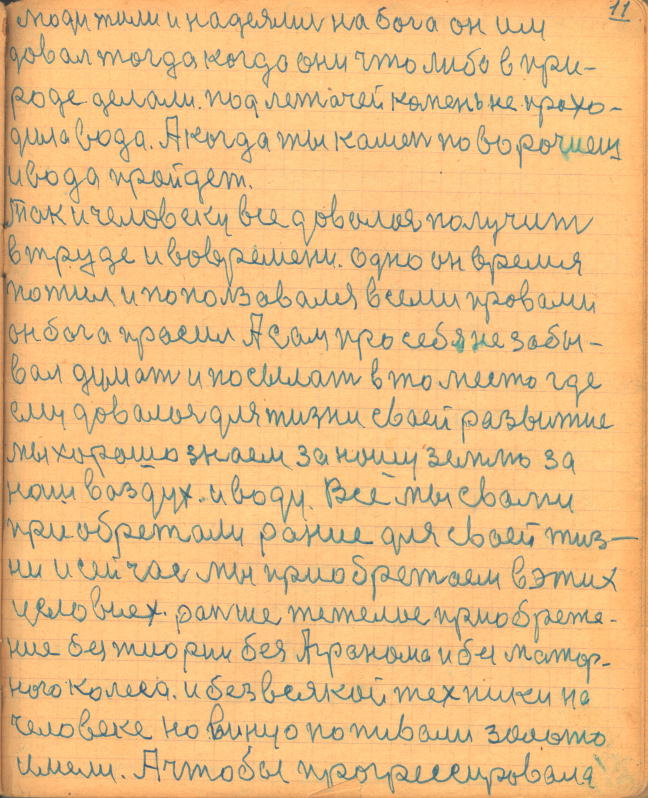 11
люди жили и надеялис на бога он им
довал тогда когда они что либо в при-
роде делали. под лежачей камень не прохо-
дила вода. А когда ты камен поворочиеш
и вода пройдет.
Так и человеку все довалоя получит
в труде и вовремени. одно он время
пожил и поползовался всеми провами
он бога просил А сам про себя не забы-
вал думат и посылат в то место где
ему довалоя для жизни своей развитие
мы хорошо знаем за ношу землю за
наш ваздух. и воду. Всё мы свами
приобретали ранше для своей жиз-
ни и сейчас мы приобретаем в этих
условиех. ранше тежелые приобрете-
ние без тиории без Агранома и без матор-
ного колеса. и без всякой техники на
человеке но винцо попивали золото
имели. А чтобы прогрессировала